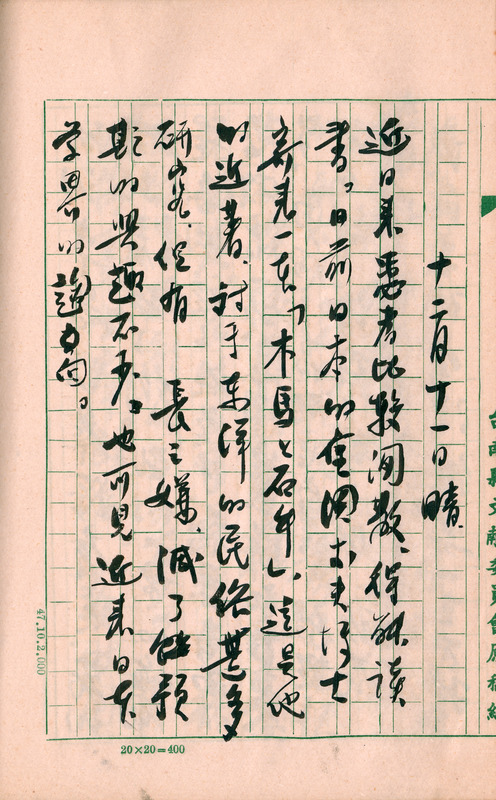 十二月十一日 晴
近日來患者比較閒散、得能讀
書、日前日本的金関丈夫博士
寄來一本「木馬と石牛」、這是他
的近著、対于東洋的民俗甚多
研究、但有 長之嫌、減了
斯的興趣不少。也可見近來日本
学界的趨向。
台南縣文獻委員會原稿紙
47.10.2,000
20×20=400